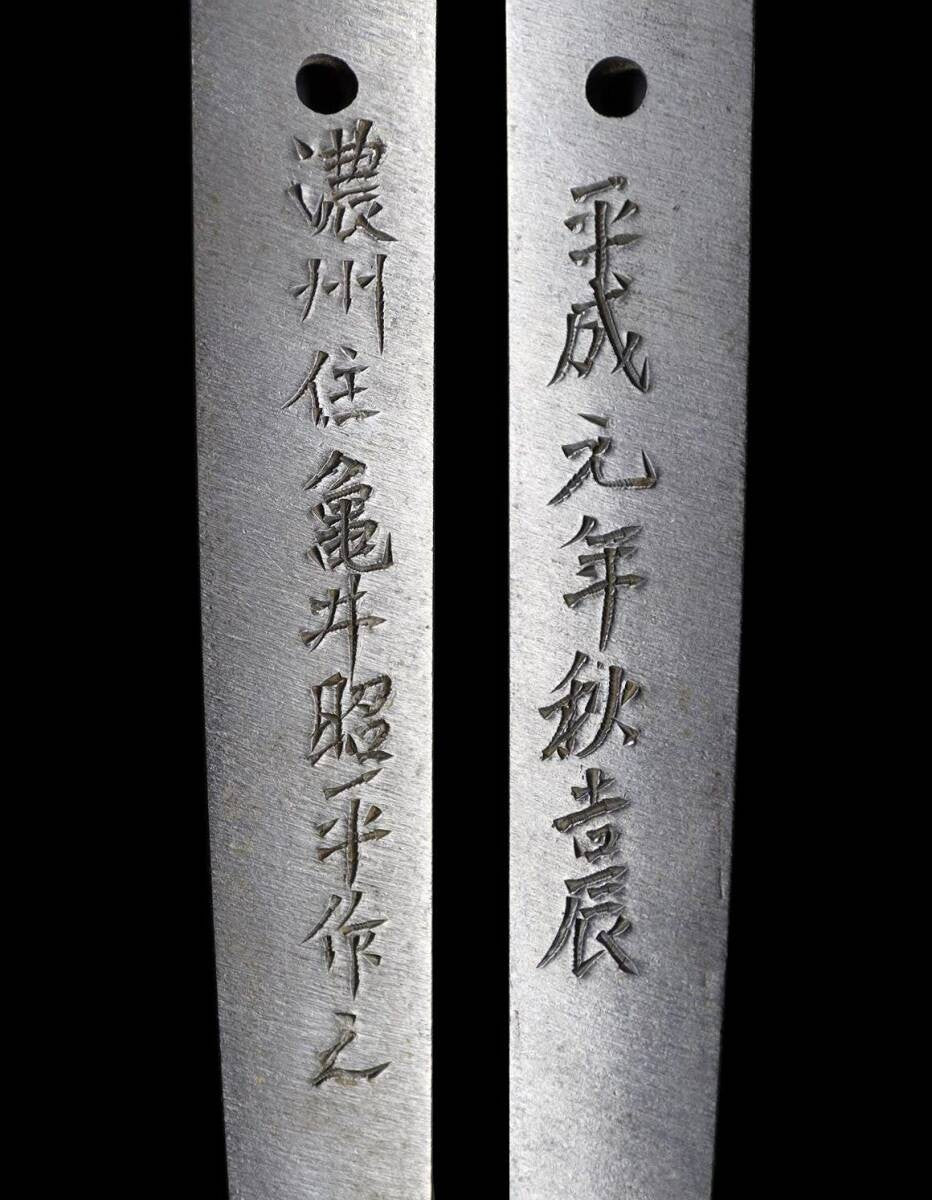 濃州住亀井昭平作之
平成元年秋吉辰